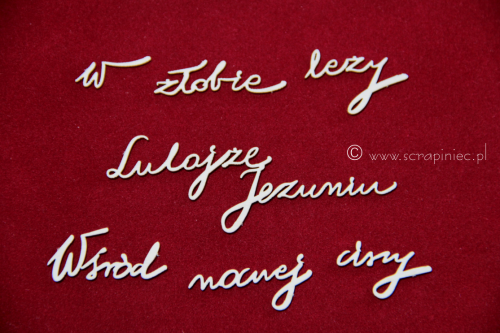 W żłobie leży
Lulajże
Jezuniu
Wśród nocnej ciszy
© www.scrapiniec.pl